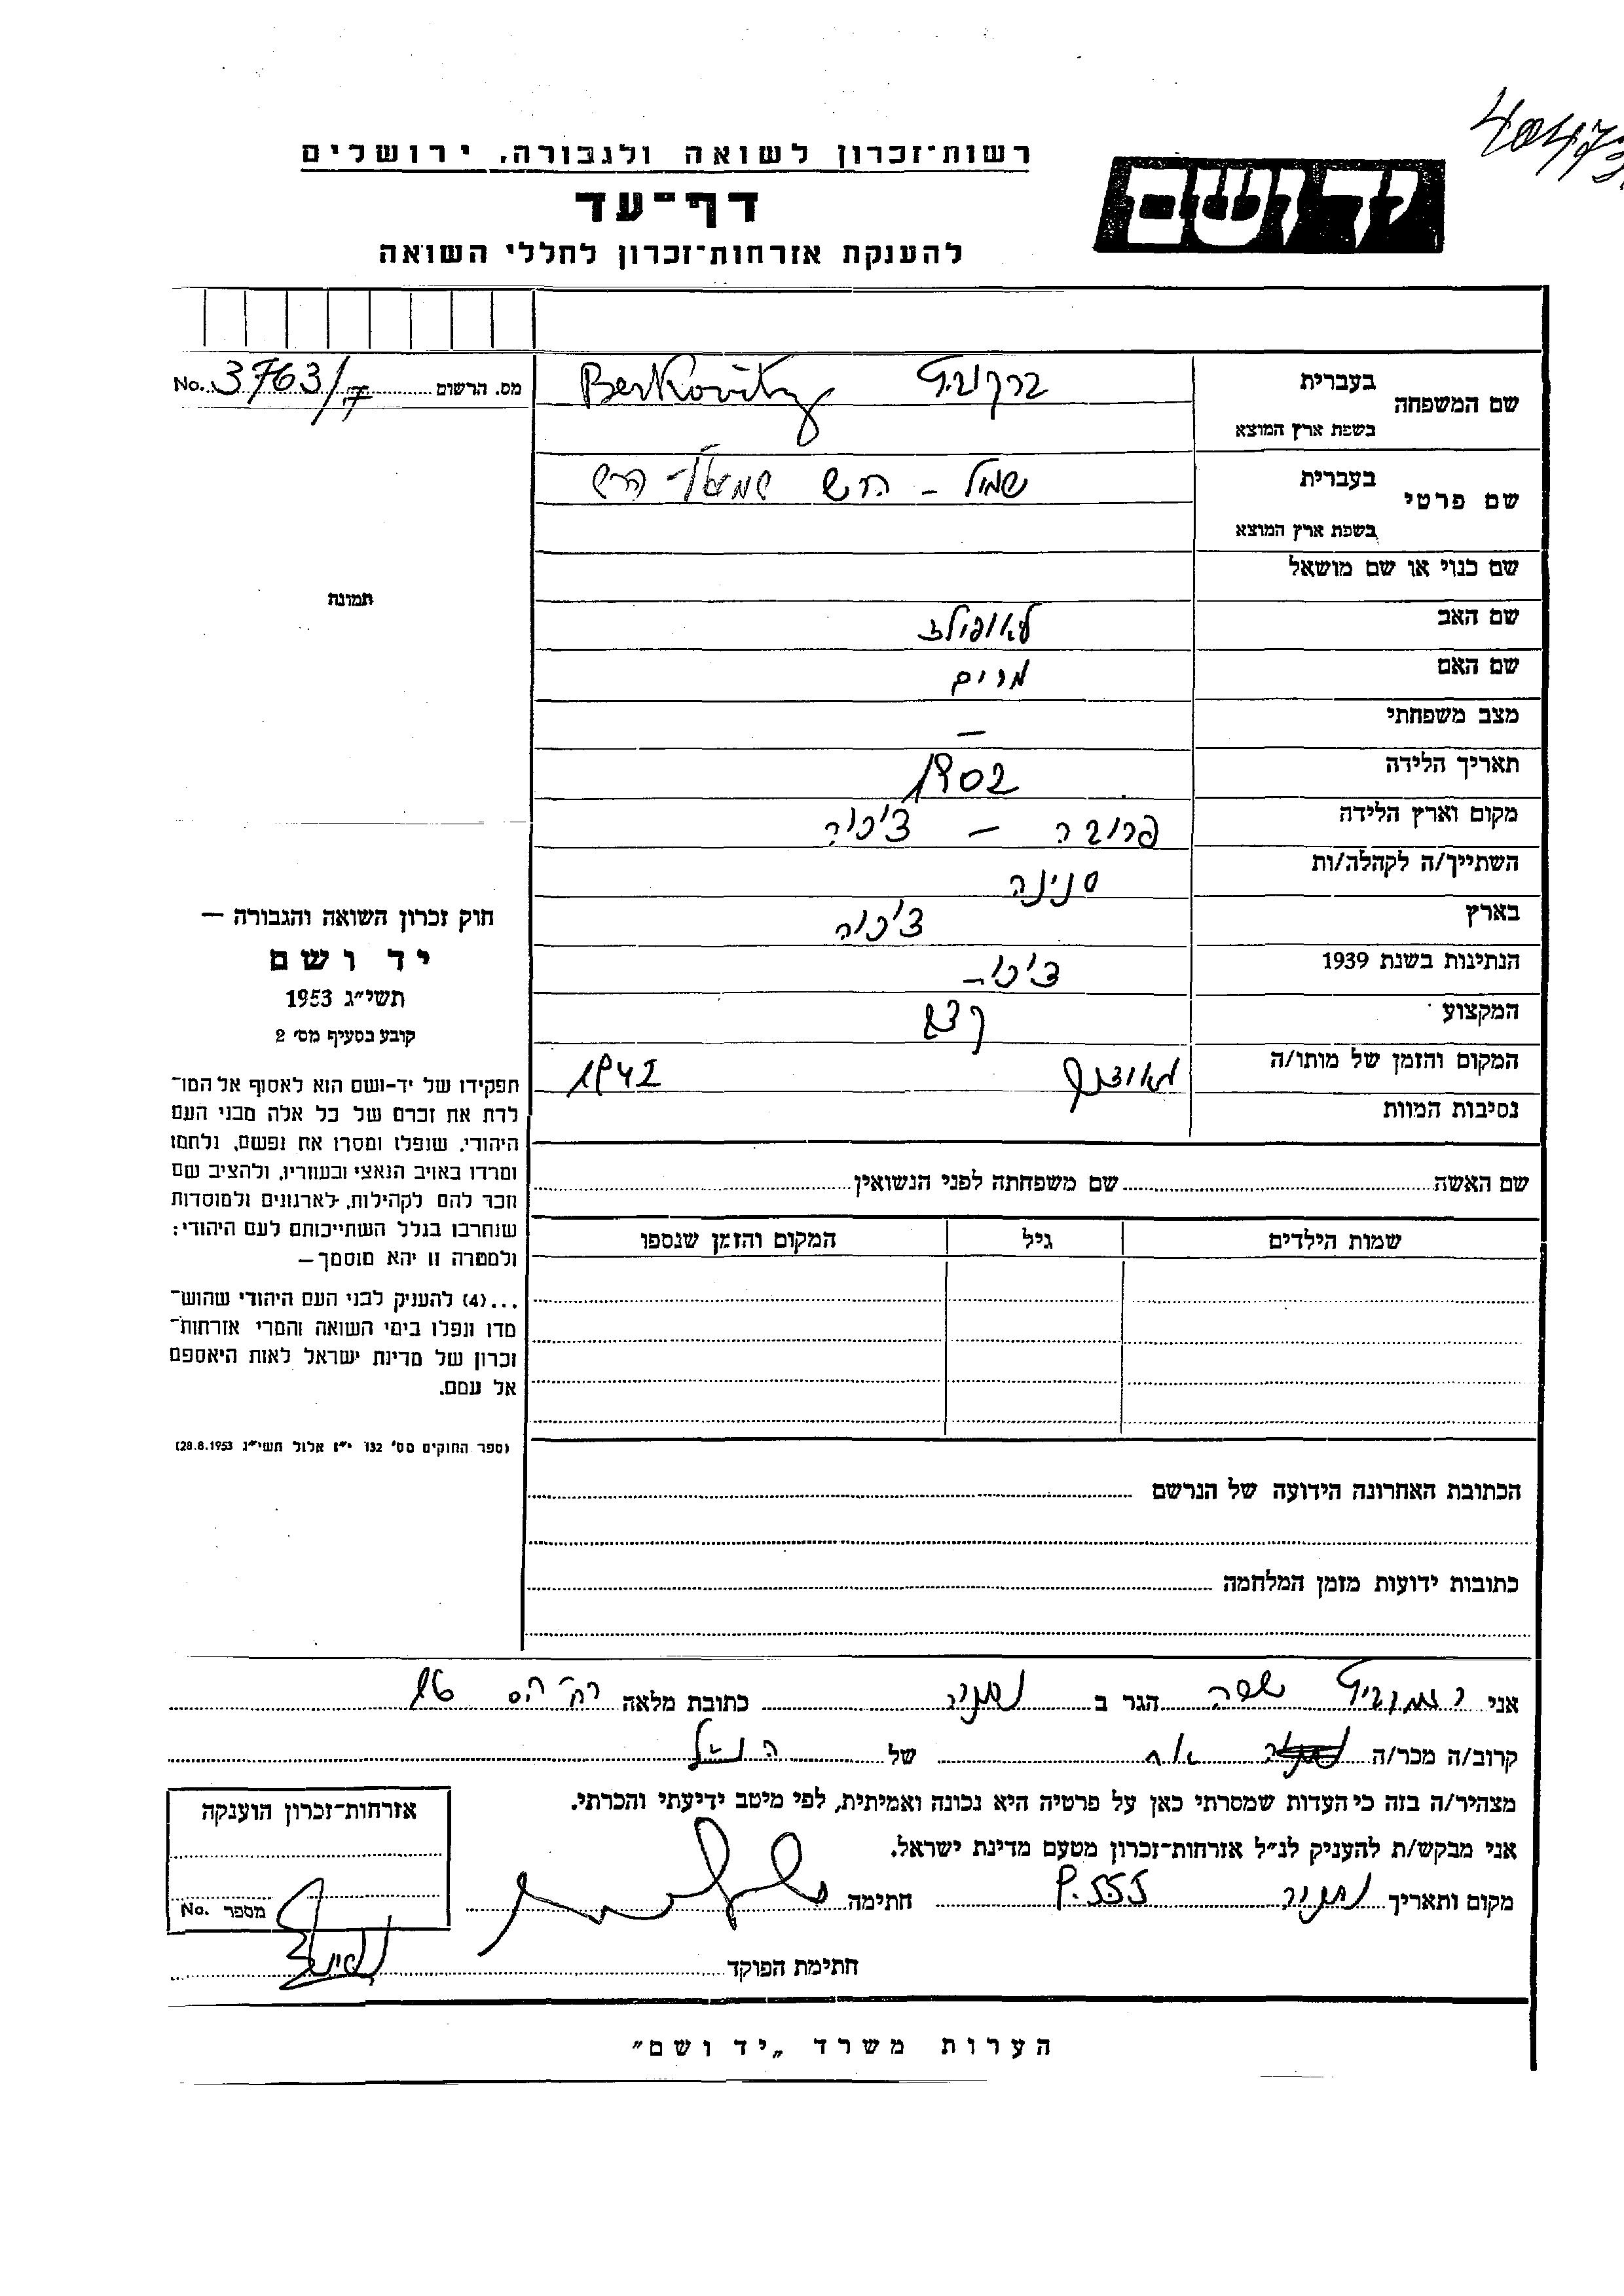 רשות־זכרון לשואה ולגבורה, ירושלים
יד ושם
דף־עד
להענקת אזרחות־זכרון לחללי השואה
מס. הרשום 3763/ No.
שם המשפחה
בעברית ברקוביץ Berkovitz
בשפת ארץ המוצא
שם פרטי
בעברית שמיל - הרש שמואל - הרש
בשפת ארץ המוצא
שם כנוי או שם מושאל
שם האב לאופולד
שם האם מרים
מצב משפחתי —
תאריך הלידה 1902
מקום וארץ הלידה פרובה - צ'כיה
השתייך/ה לקהלה/ות סנינה
בארץ צ'כיה
הנתינות בשנת 1939 צ'כי-
המקצוע קצב
המקום והזמן של מותו/ה 1942
נסיבות המוות
שם האשה שם משפחתה לפני הנשואין
שמות הילדים גיל המקום והזמן שנספו
הכתובת האחרונה הידועה של הנרשם
כתובות ידועות מזמן המלחמה
תמונה
חוק זכרון השואה והגבורה —
יד ושם
תשי״ג 1953
קובע בסעיף מס׳ 2
תפקידו של יד-ושם הוא לאסוף אל המו־
לדת את זכרם של כל אלה מבני העם
היהודי, שנפלו ומסרו את נפשם, נלחמו
ומרדו באויב הנאצי ובעוזריו, ולהציב שם
וזכר להם לקהילות, לארגונים ולמוסדות
שנחרבו בגלל השתייכותם לעם היהודי;
ולמטרה זו יהא מוסמך—
...(4) להעניק לבני העם היהודי שהוש־
מדו ונפלו בימי השואה והמרי אזרחות־
זכרון של מדינת ישראל לאות היאספם
אל עמם.
(ספר החוקים מס׳ 132 י״ז אלול תשי״ג 28.8.1953)
אני הגר ב נתניה כתובת מלאה 16
קרוב/ה מכר/ה של
מצהיר/ה בזה כי העדות שמסרתי כאן על פרטיה היא נכונה ואמיתית, לפי מיטב ידיעתי והכרתי.
אני מבקש/ת להעניק לנ״ל אזרחות־זכרון מטעם מדינת ישראל.
מקום ותאריך נתניה 9.5.55 חתימה
חתימת הפוקד
אזרחות־זכרון הוענקה
מספר No.
הערות משרד „יד ושם״